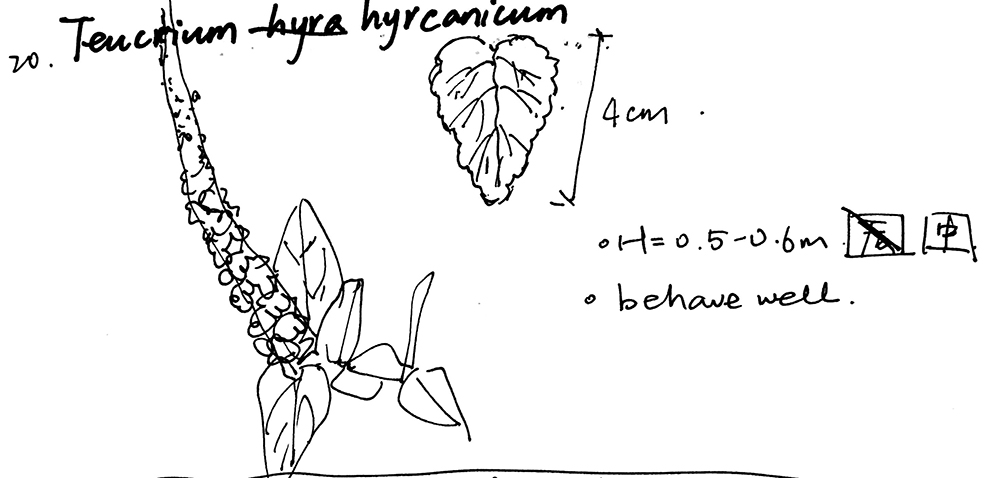 20. Teucrium hyra hyrcanicum
4cm
H=0.5-0.6m 中
behave well.